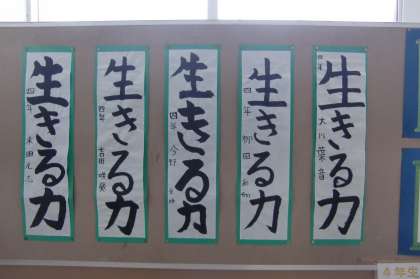 生きる力
四年 大川葉音
生きる力
四年
生きる力
四年 今野
生きる力
四年 吉田
生きる力
四年 米田